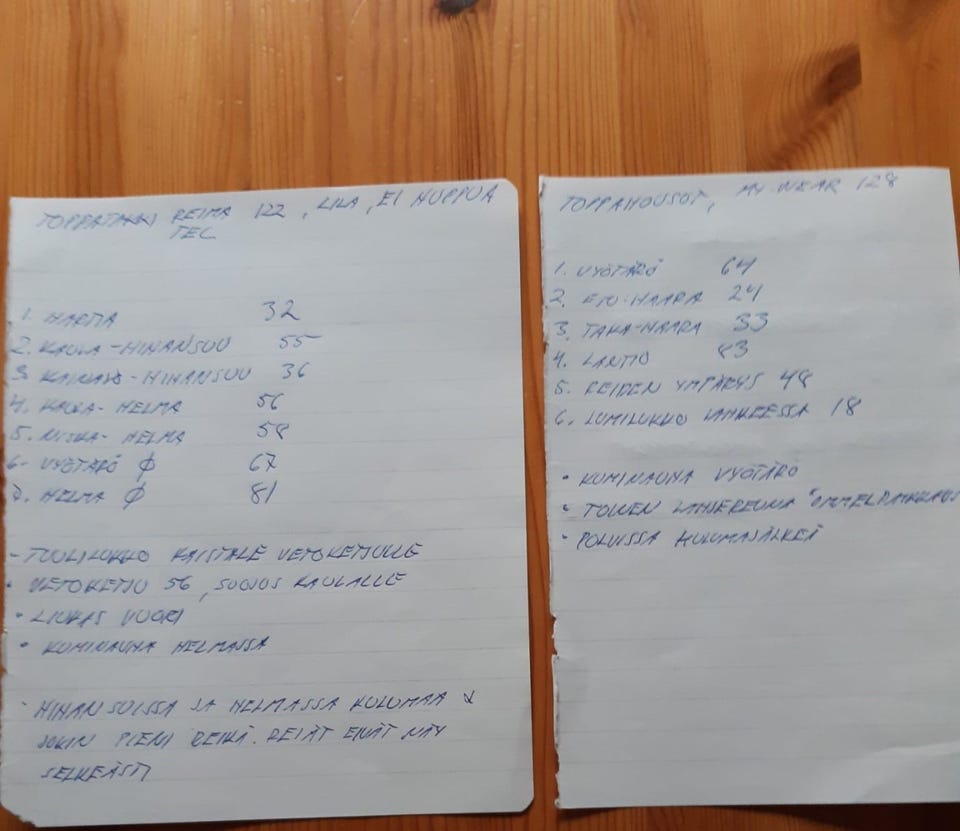 TOPPATAKKI REIMA 122, LILA, EI HUPPUA
TEC
1. HARTIA 32
2. KAULA-HIHANSUU 55
3. KAINALO-HIHANSUU 36
4. KAULA-HELMA 56
5. NISKA-HELMA 58
6. VYÖTÄRÖ Ø 67
7. HELMA Ø 81
- TUULILUKKO KAISTALE VETOKETJULLE
• VETOKETJU 56, SUOJUS KAULALLE
• LIUKAS VUORI
• KUMINAUHA HELMASSA
• HIHANSUISSA JA HELMASSA KULUMAA &
JOKIN PIENI REIKÄ. REIÄT EIVÄT NÄY
SELKEÄSTI
TOPPAHOUSUT, MY WEAR 128
1. VYÖTÄRÖ 64
2. ETU-HAARA 24
3. TAKA-HAARA 33
4. LANTIO 83
5. REIDEN YMPÄRYS 48
6. LUMILUKKO LAHKEESSA 18
• KUMINAUHA VYÖTÄRÖ
• TOISEN LAHJEREUNA
• POLVISSA KULUMAJÄLKEÄ